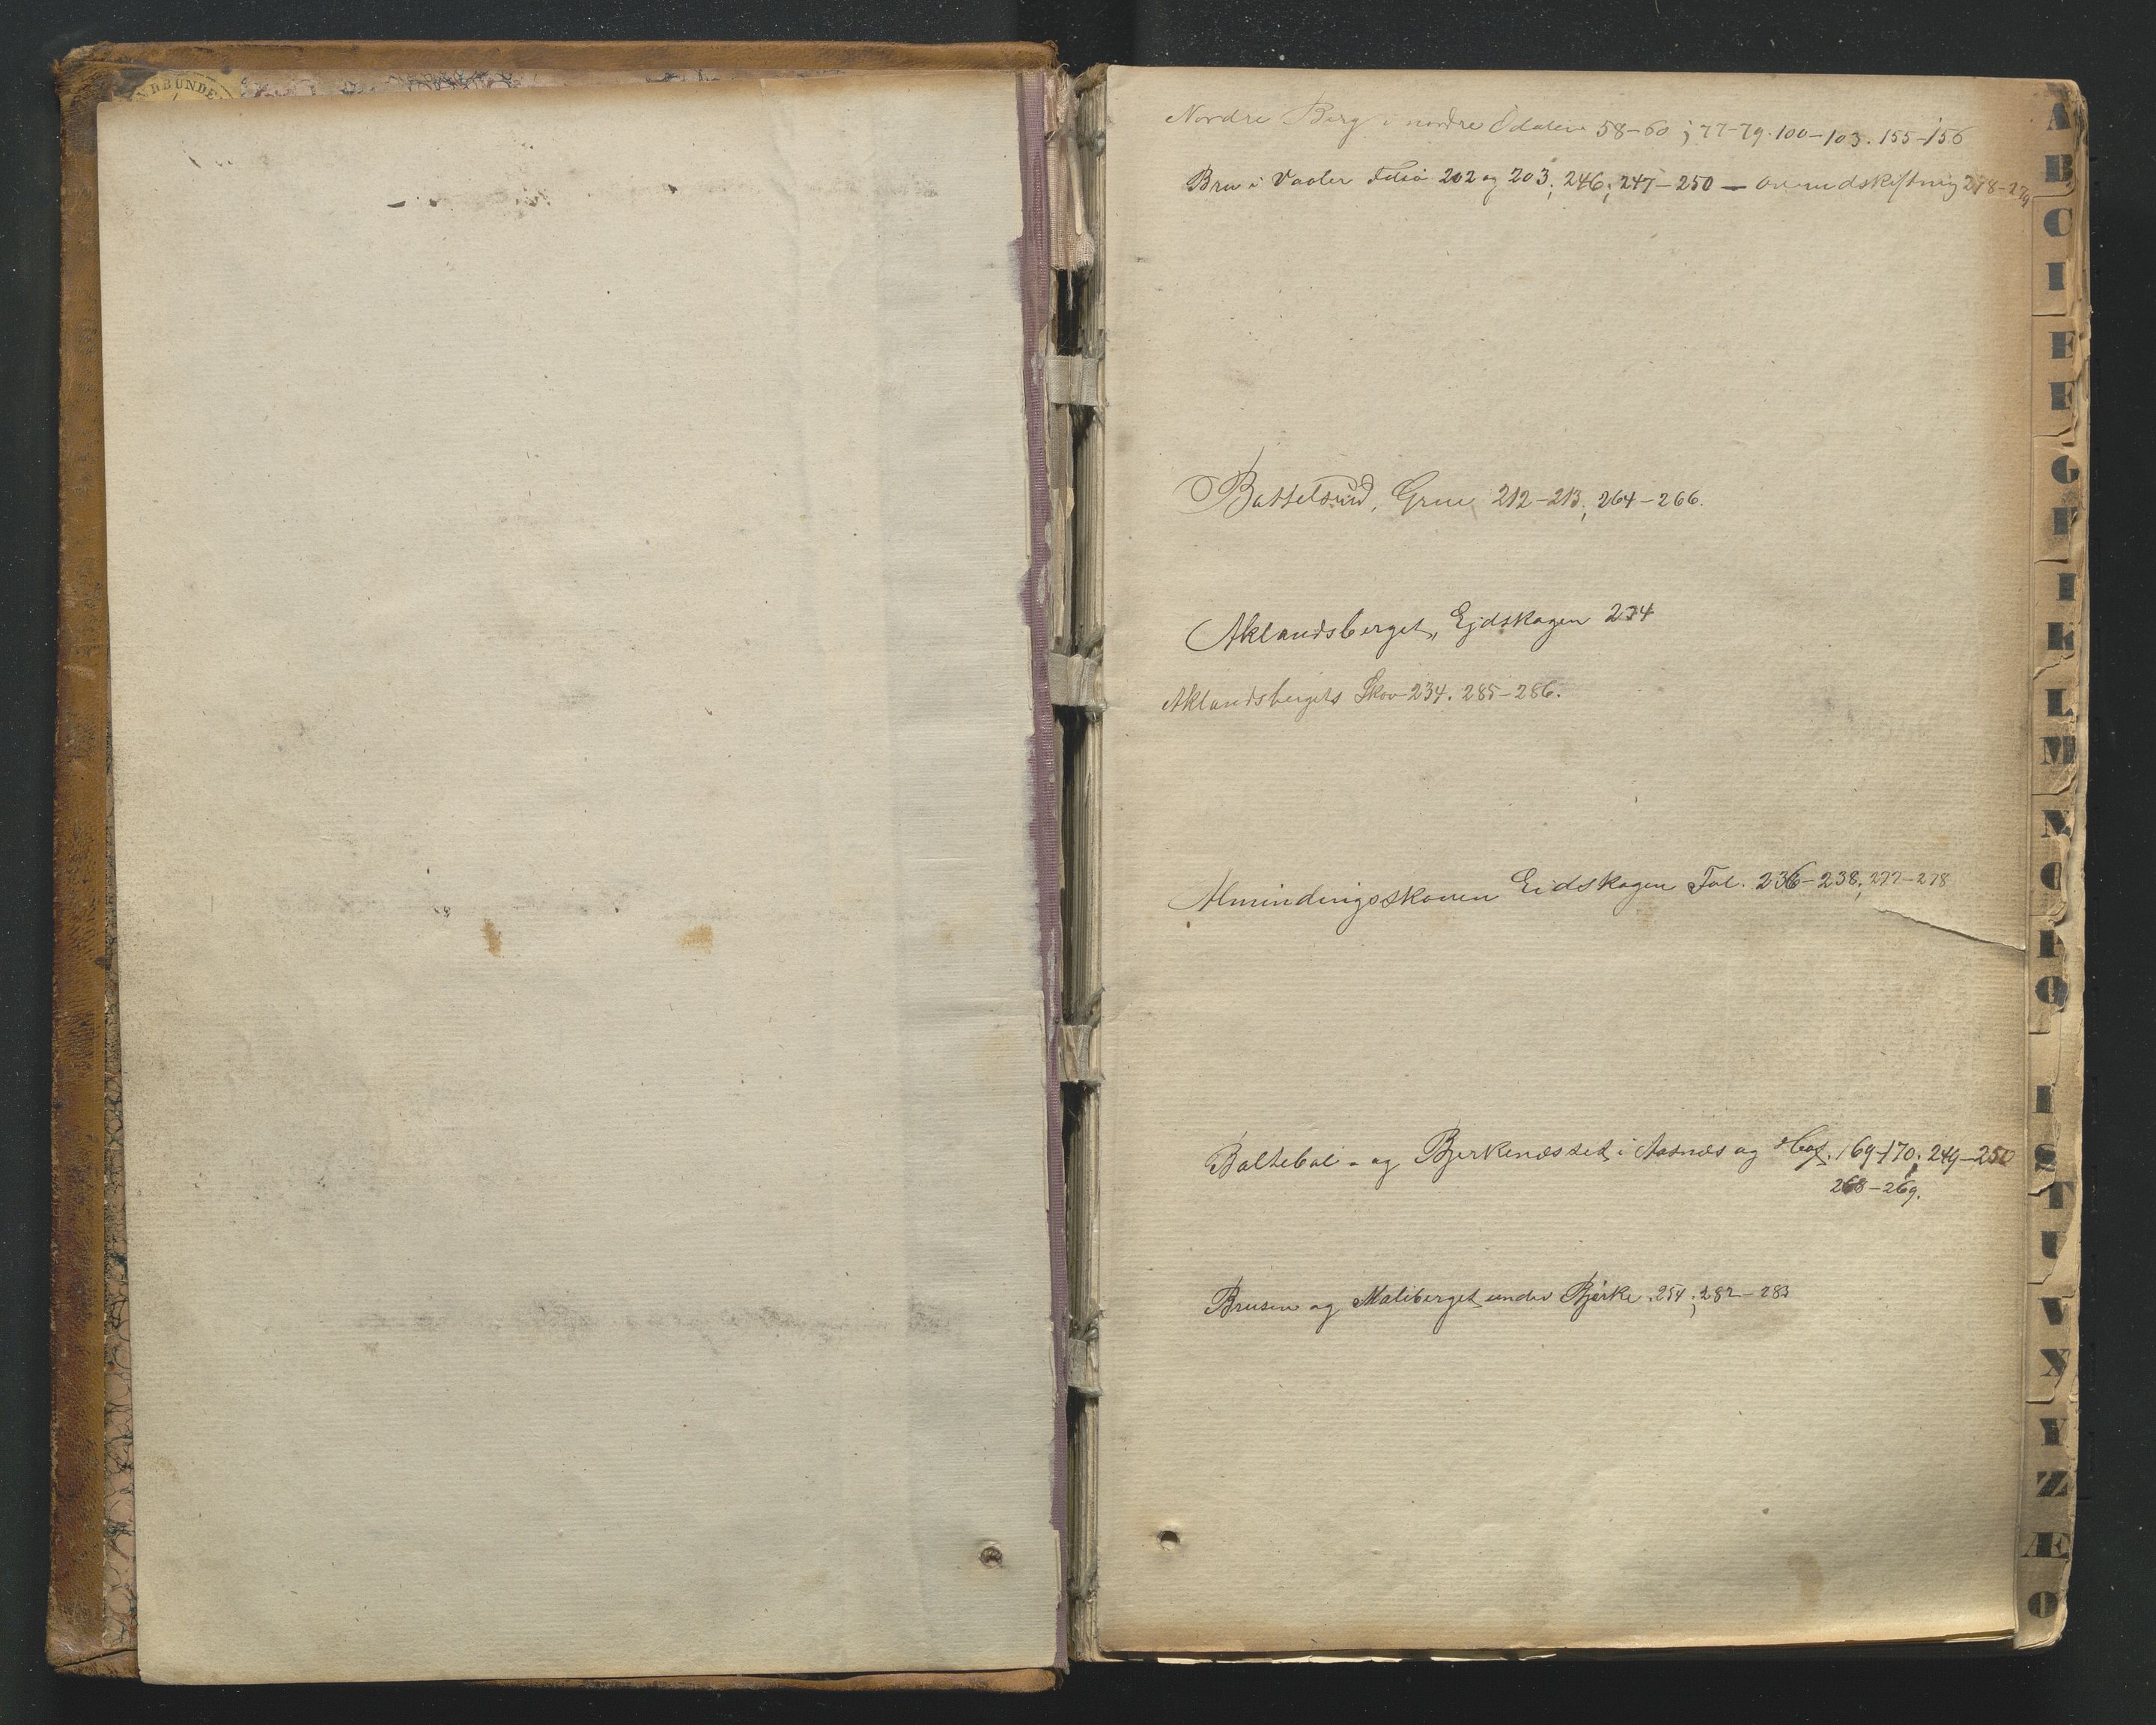 NDBUNDE
Nordre Berg i nordre Odalen 58-60; 77-79. 100-103. 155-156
Bru i Vaaler Folio 202 og 203; 246; 247-250 — Overudskiftning 278-279
Battelsrud, Grue 212-213; 264-266.
Aklandsberget, Ejdskogen 234
Aklandsbergets Skov 234. 285-286.
Almindingsskoven Eidskogen Fol. 236-238; 277-278
Baltebøl- og Bjerkenæsset i Aasnæs og Hof. 169-170; 249-250
268-269.
Brusen og Maliberget under Bjerke 254; 282-283
A
B
C
E
F
G
I
K
L
M
N
O
P
Q
S
T
U
V
X
Y
Z
Æ
O